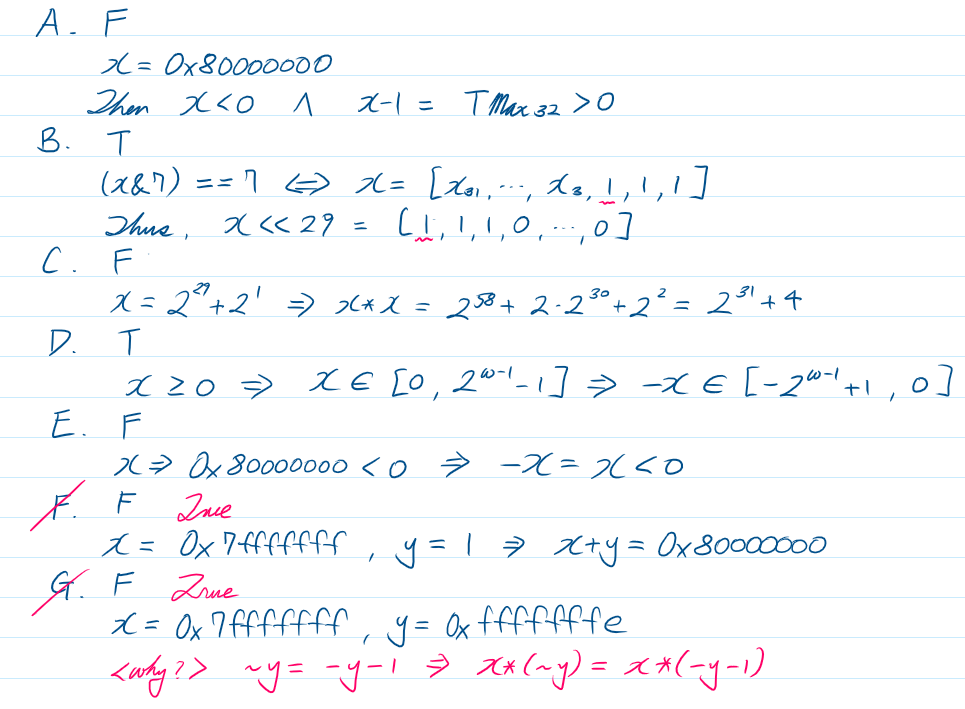 A. F
x = 0x80000000
Then x<0 ∧ x-1 = TMax32 >0
B. T
(x&7) == 7 ⇔ x = [x31, ..., x3, 1, 1, 1]
Thus, x << 29 = [1, 1, 1, 0, ..., 0]
C. F
x = 2^29 + 2^1 ⇒ x*x = 2^58 + 2·2^30 + 2^2 = 2^31 + 4
D. T
x ≥ 0 ⇒ x ∈ [0, 2^(w-1) -1] ⇒ -x ∈ [-2^(w-1) +1, 0]
E. F
x ⇒ 0x80000000 < 0 ⇒ -x = x < 0
F. F True
x = 0x7fffffff, y = 1 ⇒ x+y = 0x80000000
G. F True
x = 0x7fffffff, y = 0xfffffffe
<why?> ~y = -y-1 ⇒ x*(~y) = x*(-y-1)